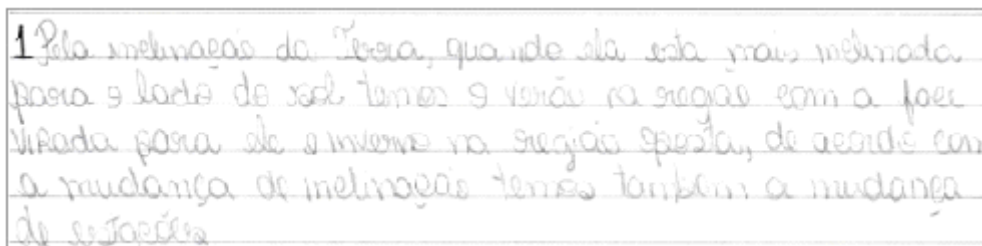 1 Pela inclinação da Terra, quando ela esta mais inclinada
para o lado do sol temos o verão na região com a face
virada para ele e inverno na região oposta, de acordo com
a mudança de inclinação temos também a mudança
de estações